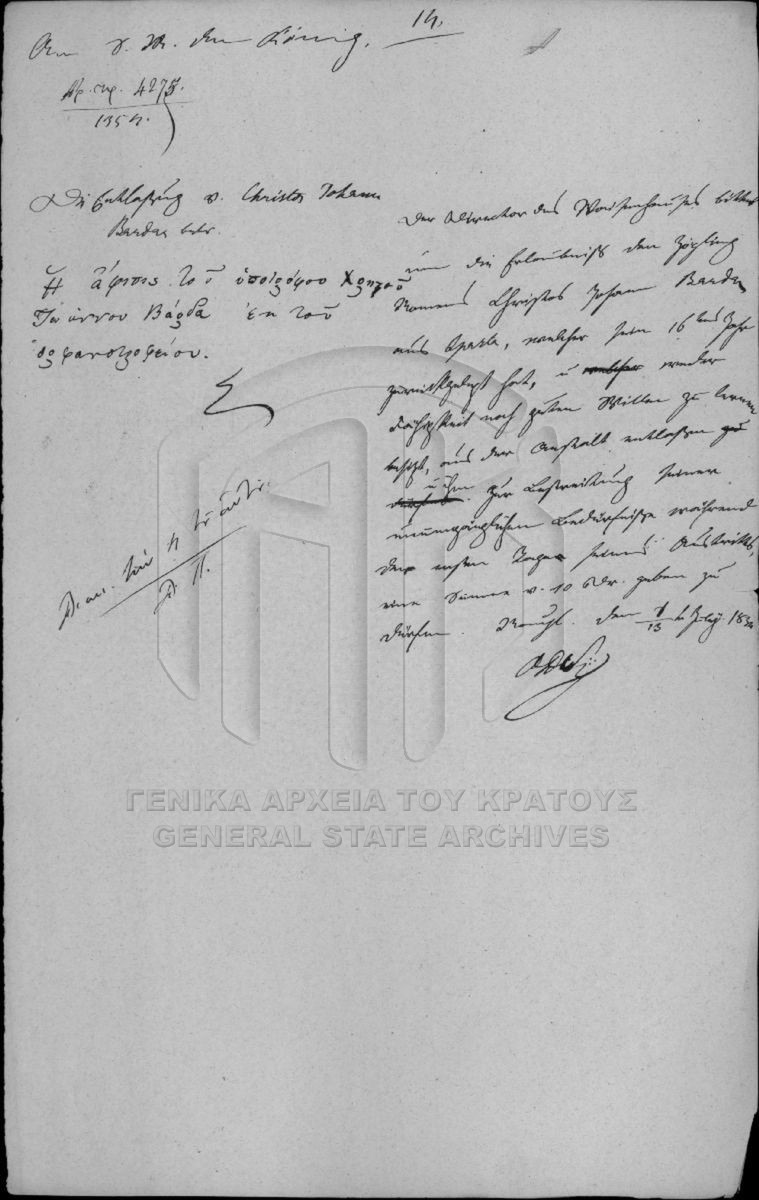 14.
An S. M. den König.
Αρ. πρ. 4275.
1834.
Die Entlassung v. Christos Johann
Bardas betr.
Ἡ ἄφεσις τοῦ ὑποτρόφου Χρήστου
Ἰωάννου Βάρδα ἐκ τοῦ
ὀρφανοτροφείου.
Der Director des Waisenhauses bittet
um die Erlaubniß den Zögling
Namens Christos Johann Bardas
aus Sparta, welcher sein 16tes Jahr
zurückgelegt hat, u. welcher weder
Fähigkeit noch guten Willen zu lernen
besitzt, aus der Anstalt entlassen zu
u ihm zur Bestreitung seiner
unumgänglichen Bedürfnisse während
der ersten Tage seines Austritts,
eine Summe v. 10 Dr. geben zu
dürfen. Naupl. den 1/13 July 1834
ΓΕΝΙΚΑ ΑΡΧΕΙΑ ΤΟΥ ΚΡΑΤΟΥΣ
GENERAL STATE ARCHIVES